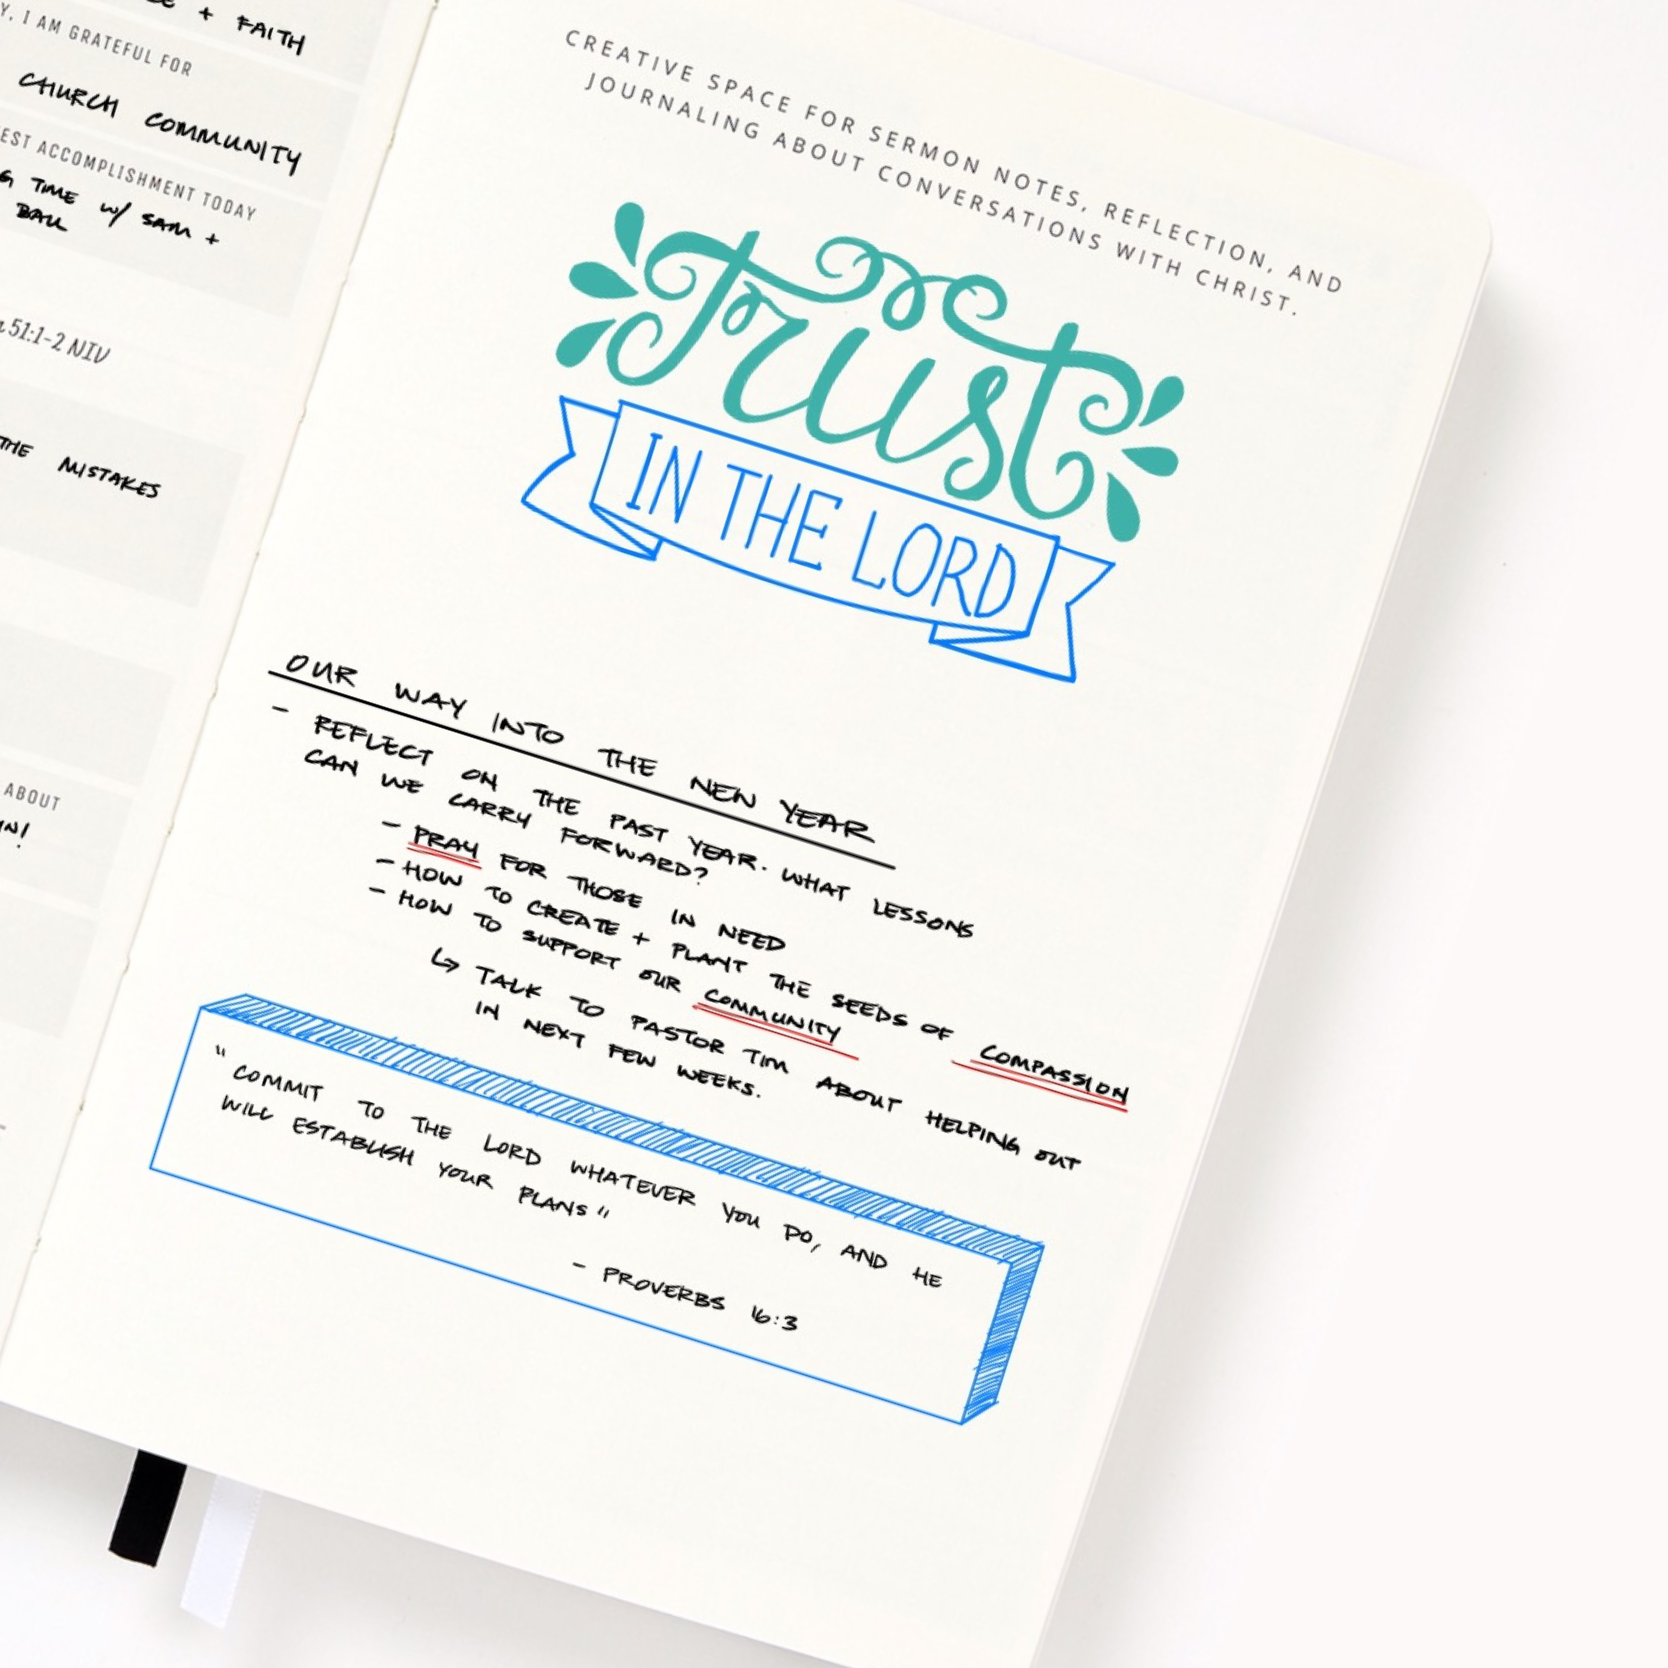 + FAITH
I AM GRATEFUL FOR
CHURCH COMMUNITY
ACCOMPLISHMENT TODAY
TIME w/ SAM +
BALL
51:1-2 NIV
THE MISTAKES
ABOUT
CREATIVE SPACE FOR SERMON NOTES, REFLECTION, AND
JOURNALING ABOUT CONVERSATIONS WITH CHRIST.
Trust
IN THE LORD
OUR WAY INTO THE NEW YEAR
- REFLECT ON THE PAST YEAR. WHAT LESSONS
CAN WE CARRY FORWARD?
- PRAY FOR THOSE IN NEED
- HOW TO CREATE + PLANT THE SEEDS OF COMPASSION
- HOW TO SUPPORT OUR COMMUNITY
↳ TALK TO PASTOR TIM ABOUT HELPING OUT
IN NEXT FEW WEEKS.
"COMMIT TO THE LORD WHATEVER YOU DO, AND HE
WILL ESTABLISH YOUR PLANS"
- PROVERBS 16:3